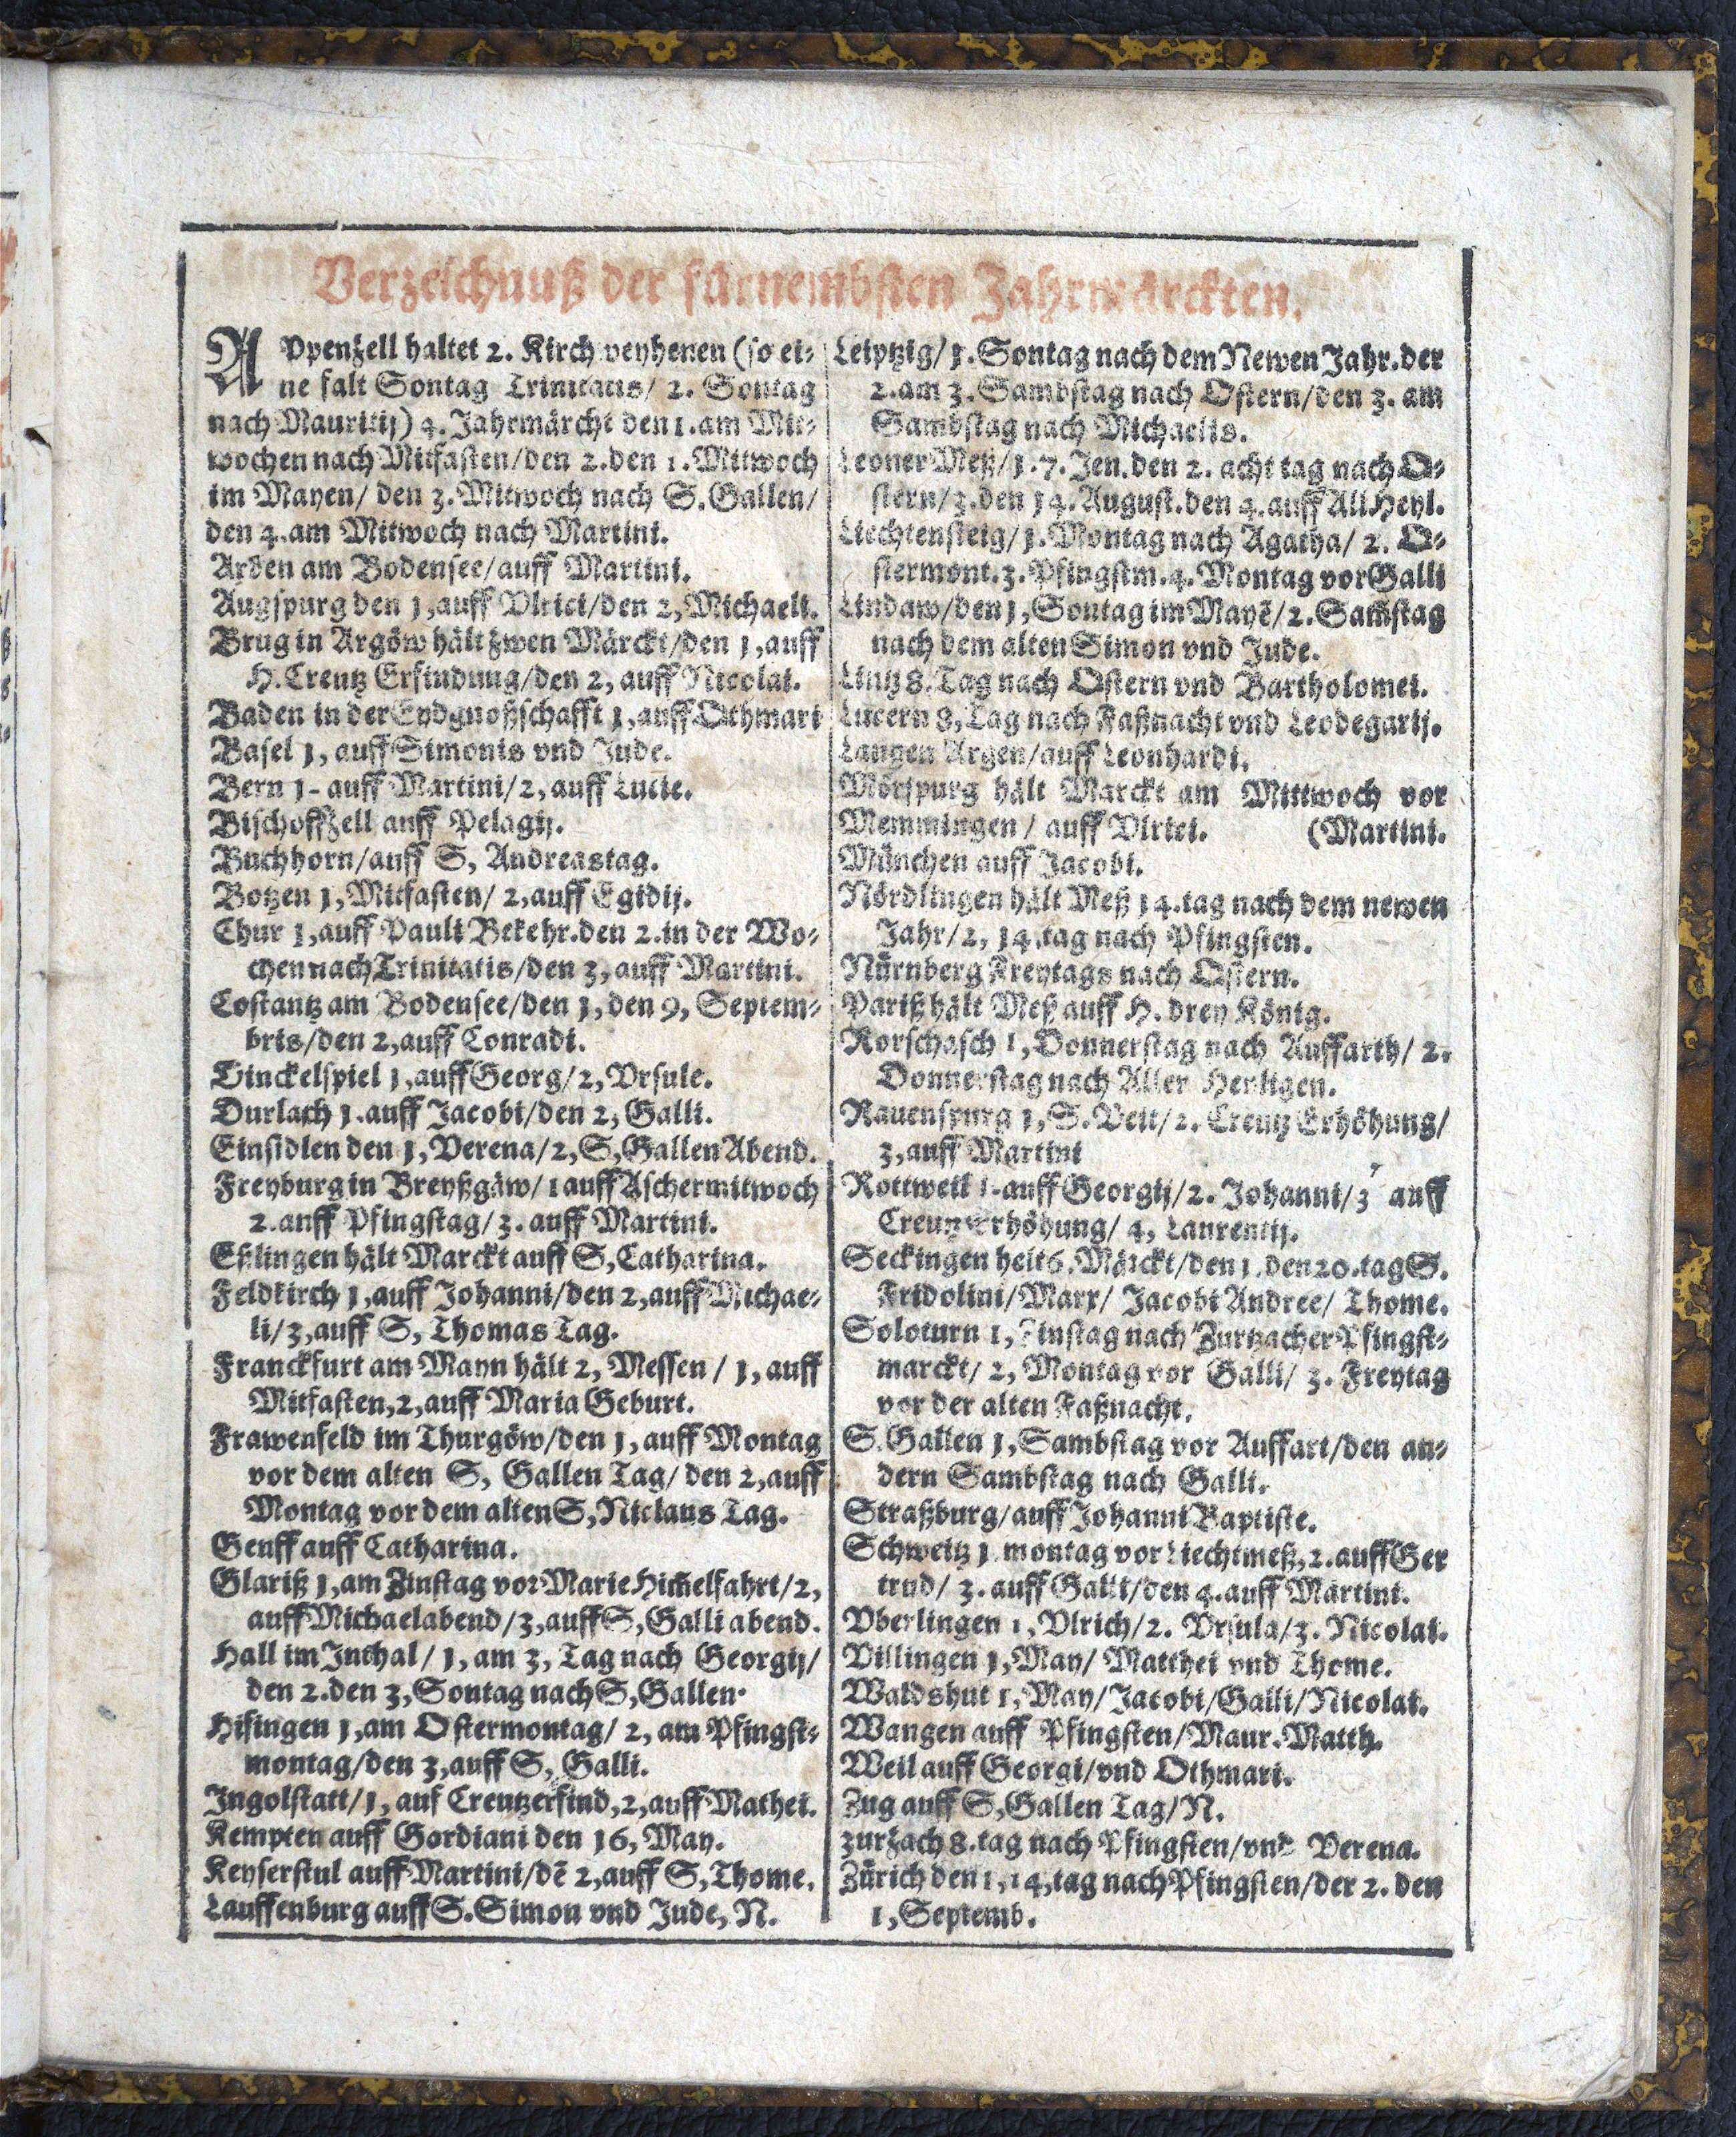 Verzeichnuß der fürnembsten Jahrmärckten.
APpenzell haltet 2. Kirchweyhenen (so ei-
ne falt Sontag Trinitatis/ 2. Sontag
nach Mauritij) 4. Jahrmärcht den 1. am Mit-
wochen nach Mitfasten/den 2. den 1. Mitwoch
im Mayen/ den 3. Mitwoch nach S. Gallen/
den 4. am Mitwoch nach Martini.
Arben am Bodensee/auff Martini.
Augspurg den 1, auff Vlrici/den 2, Michaeli.
Brug in Argöw hält zwen Märckt/den 1, auff
H. Creutz Erfindung/den 2, auff Nicolai.
Baden in der Eydgnoßschafft 1, auff Othmari
Basel 1, auff Simonis vnd Jude.
Bern 1- auff Martini/2, auff Lucie.
Bischoffzell auff Pelagij.
Buchhorn/auff S, Andreastag.
Botzen 1, Mitfasten/ 2, auff Egidij.
Chur 1, auff Pauli Bekehr. den 2. in der Wo-
chen nach Trinitatis/den 3, auff Martini.
Costantz am Bodensee/den 1, den 9, Septem-
bris/den 2, auff Conradi.
Dinckelspiel 1, auff Georg/2, Vrsule.
Durlach 1. auff Jacobi/den 2, Galli.
Einsidlen den 1, Verena/2, S, Gallen Abend.
Freyburg in Breyßgäw/1 auff Aschermitwoch
2. auff Pfingstag/3. auff Martini.
Eßlingen hält Marckt auff S, Catharina.
Feldkirch 1, auff Johanni/den 2, auff Michae-
li/3, auff S, Thomas Tag.
Franckfurt am Mayn hält 2, Messen / 1, auff
Mitfasten, 2, auff Maria Geburt.
Frawenfeld im Thurgöw/den 1, auff Montag
vor dem alten S, Gallen Tag/ den 2, auff
Montag vor dem alten S, Niclaus Tag.
Genff auff Catharina.
Glariß 1, am Zinstag vor Marie Him̃elfahrt/2,
auff Michaelabend/3, auff S, Galli abend.
Hall im Inthal/ 1, am 3, Tag nach Georgij/
den 2. den 3, Sontag nach S, Gallen.
Hifingen 1, am Ostermontag/ 2, am Pfingst-
montag/den 3, auff S, Galli.
Ingolstatt/1, auf Creutzerfind, 2, auff Mathei.
Kempten auff Gordiani den 16, May.
Keyserstul auff Martini/dē 2, auff S, Thome.
Lauffenburg auff S. Simon vnd Jude, N.
Leiptzig/ 1. Sontag nach dem Newen Jahr. der
2. am 3. Sambstag nach Ostern/den 3. am
Sambstag nach Michaelis.
Leoner Meß/1. 7. Jen. den 2. acht tag nach O-
stern/3. den 14. August. den 4. auff All Heyl.
Liechtensteig/1. Montag nach Agatha/ 2. O-
stermont. 3. Pfingstm. 4. Montag vor Galli
Lindaw/den 1, Sontag im Mayē/2. Sam̃stag
nach dem alten Simon vnd Jude.
Lintz 8. Tag nach Ostern vnd Bartholomei.
Lucern 8, Tag nach Faßnacht vnd Leodegarij.
Langen Argen/auff Leonhardi.
Mörspurg hält Marckt am Mittwoch vor
Memmingen / auff Vlrici. (Martini.
München auff Jacobi.
Nördlingen hält Meß 14. tag nach dem newen
Jahr/2, 14. tag nach Pfingsten.
Nürnberg Freytags nach Ostern.
Pariß hält Meß auff H. drey König.
Rorschach 1, Donnerstag nach Auffarth/ 2.
Donnerstag nach Aller Heyligen.
Rauenspurg 1, S. Veit/2. Creutz Erhöhung/
3, auff Martini
Rottweil 1- auff Georgij/2. Johanni/3 auff
Creutzerhöhung/ 4, Laurentij.
Seckingen helt 6. Märckt/den 1. den 20. tag S.
Fridolini/Marx/ Jacobi Andree/ Thome.
Soloturn 1, Zinstag nach Zurtzacher Pfingst-
marckt/ 2, Montag vor Galli/ 3. Freytag
vor der alten Faßnacht.
S. Gallen 1, Sambstag vor Auffart/den an-
dern Sambstag nach Galli.
Straßburg/auff Johanni Baptiste.
Schweitz 1 montag vor Liechtmeß, 2. auff Ger
trud/ 3. auff Galli/den 4. auff Martini.
Vberlingen 1, Vlrich/2. Vrsula/3. Nicolai.
Villingen 1, May/ Matthei vnd Thome.
Waldshut 1, May/Jacobi/Galli/Nicolai.
Wangen auff Pfingsten/Maur. Matth.
Weil auff Georgi/vnd Othmari.
Zug auff S, Gallen Tag/N.
Zurzach 8. tag nach Pfingsten/vnd Verena.
Zürich den 1, 14, tag nach Pfingsten/der 2. den
1, Septemb.